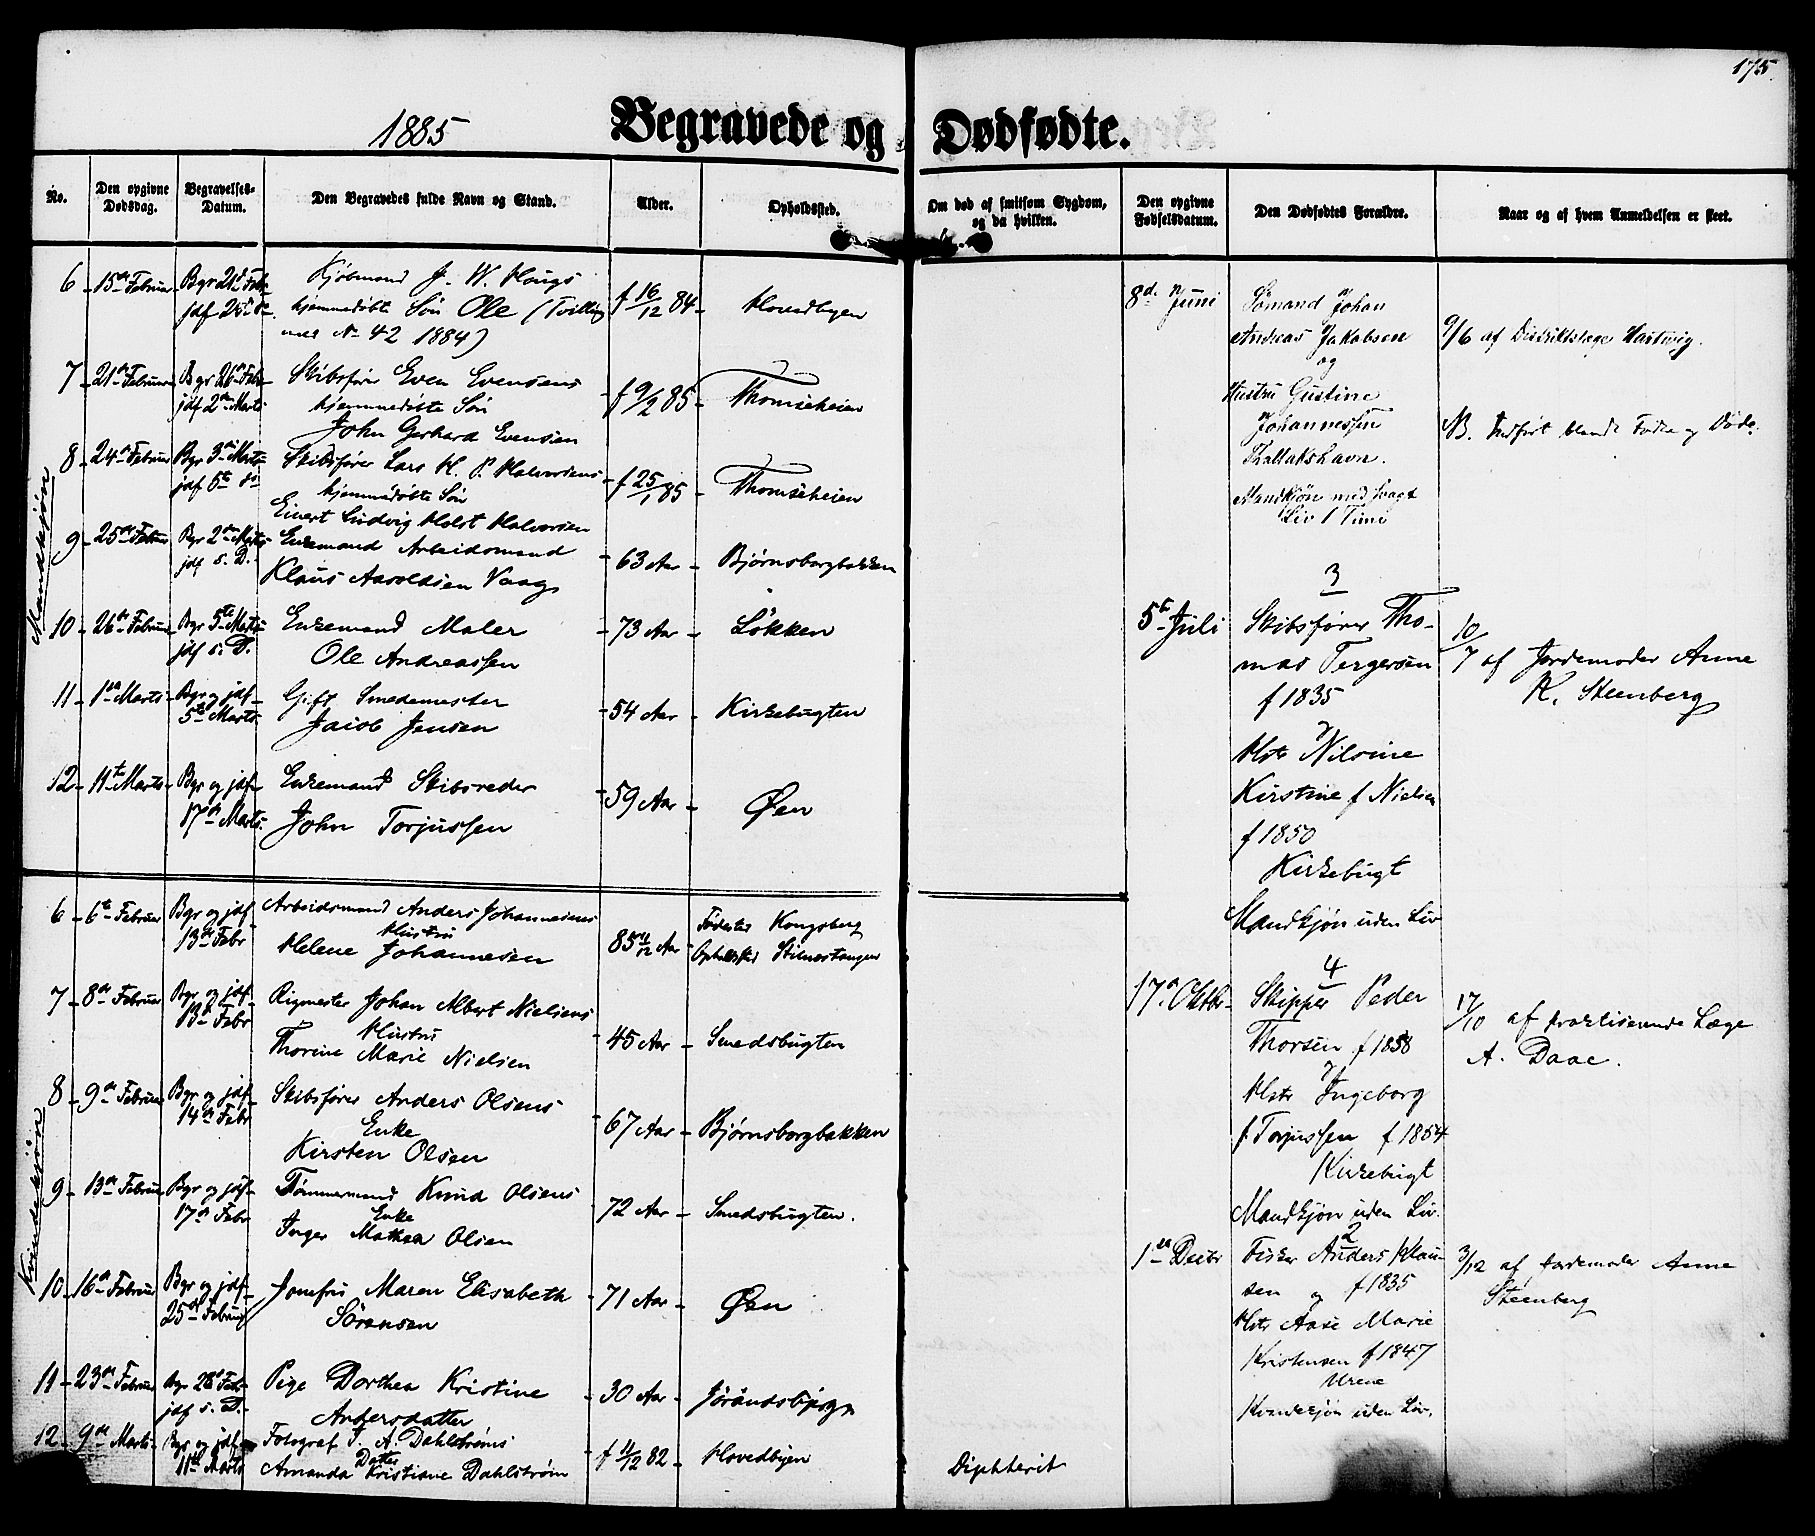 175.
1885
Begravede og Dødfødte.
No.
Den opgivne Dødsdag.
Begravelses-Datum.
Den Begravedes fulde Navn og Stand.
Alder.
Opholdssted.
Om død af smitsom Sygdom, og da hvilken.
Den opgivne Fødselsdatum.
Den Dødfødtes Forældre.
Naar og af hvem Anmeldelsen er skeet.
Mandkjøn
6 - 15de Februar - Bgr d 21de Feb - Kjøbmand J. W. Haugs f 16/12 84 - Hovedbyen
jdf 25de s. hjemmedøbte Søn Ole (Tvilling
med No 42 1884)
7 - 21de Februar Bgr 26de Feb - Skibsfører Even Evensens f 9/2 85 - Thomseheien
jdf 2den Marts hjemmedøbte Søn
John Gerhard Evensen
8 - 24de Februar Bgr 3die Marts Skibsfører Lars H. P. Halvorsens - f 25/1 85 - Thomseheien
jdf 5te s. hjemmedøbte Søn
Einert Ludvig Holst Halvorsen
9 - 25de Februar Bgr 2den Marts Enkemand Arbeidsmand - 63 Aar - Bjørnsborgbakken
jdf s. D. Klaus Aaroldsen Vaag
10 - 26de Februar Bgr 5te Marts Enkemand Maler - 73 Aar - Løkken
jdf s. D. Ole Andreassen
11 - 1ste Marts - Bgr og jdf Gift Smedemester - 54 Aar - Kirkebugten
5te Marts Jacob Jensen
12 - 11te Marts - Bgr og jdf Enkemand Skibsreder - 59 Aar - Øen
17de Marts. John Torjussen
Kvindekjøn
6 - 6te Februar Bgr og jdf Arbeidsmand Anders Johannesens 85 11/12 Aar Fødested Kongsberg
13de Febr Hustru Opholdssted Stinestangen
Helene Johannesen
7 - 8de Februar Bgr og jdf - Rigmester Johan Albert Nielsens - 45 Aar - Smedsbugten
13de Febr Hustru
Thorine Marie Nielsen
8 - 9de Februar Bgr og jdf - Skibsfører Anders Olsens - 67 Aar - Bjørnsborgbakken
14de Febr Enke
Kirsten Olsen
9 - 13de Februar Bgr og jdf - Tømmermand Knud Olsens - 72 Aar - Smedsbugten.
17de Febr Enke
Inger Mathea Olsen
10 - 16de Februar Bgr og jdf - Jomfru Maren Elisabeth - 71 Aar - Øen
25de Februar Sørensen
11 - 23de Februar Bgr 28de Feb - Pige Dorthea Kristine - 30 Aar -
jdf s. D. Andersdatter
12 - 9de Marts - Bgr og jdf Fotograf F. A. Dahlstrøms - f 11/12 82 - Hovedbyen Diphterit
11te Marts Datter
Amanda Kristiane Dahlstrøm
8de Juni Sømand Johan
Andreas Jakobsen 9/6 af Distriktslæge Hartwig.
og
Hustru Gustine
Johannessen NB. Indført blandt Fødte og Døde.
Kallakshavn.
Mandkjøn med svagt
Liv 1 Time
3
5te Juli Skibsfører Tho-
mas Tergersen 10/7 af Jordemoder Anne
f 1835 K. Steenberg
Hstr Nilsine
Kirstine f Nielsen
f 1850
Kirkebugt
Mandkjøn uden Liv
4
17de Oktbr - Skipper Peder 17/10 af praktiserende Læge
Thorsen f 1858 A. Daae.
Hstr Ingeborg
f. Torjussen f 1854
Kirkebugt
Mandkjøn uden Liv.
2
1ste Decbr Fisker Anders Klau- 3/12 af Jordemoder Anne
sen og f 1835 Steenberg
Hstr Aase Marie
Kristensen f 1847
Urene
Kvindekjøn uden Liv.